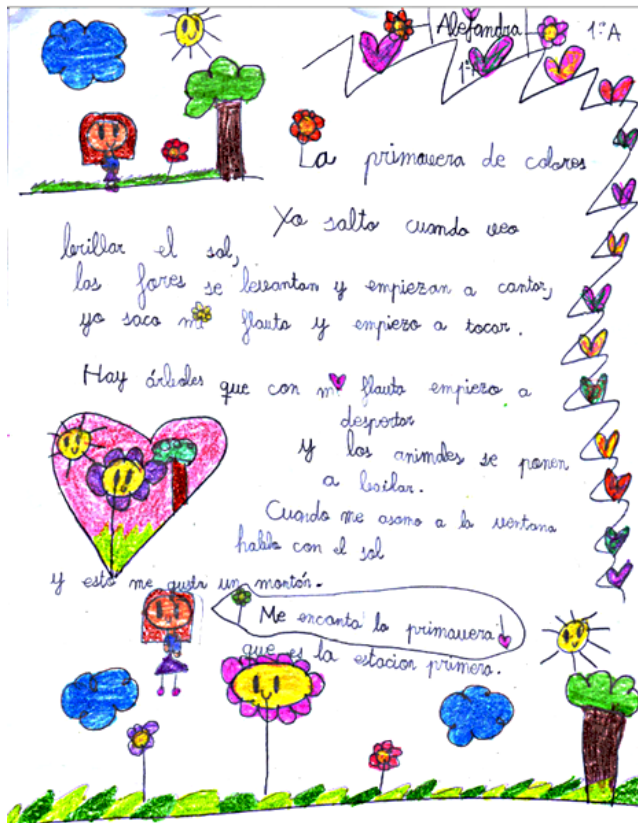 Alejandra 1ºA
1ºA
La primavera de colores
Yo salto cuando veo
brillar el sol,
las flores se levantan y empiezan a cantar,
yo saco mi flauta y empiezo a tocar.
Hay árboles que con mi flauta empiezo a
despertar
y los animales se ponen
a bailar.
Cuando me asomo a la ventana
hablo con el sol
y esto me gusta un montón.
Me encanta la primavera
que es la estacion primera.